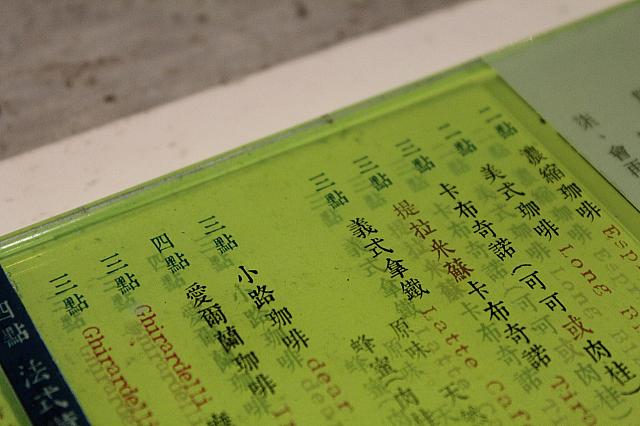 二點 濃縮咖啡
二點 美式咖啡 long
三點 卡布奇諾(可可或肉桂)
三點 提拉米蘇卡布奇諾
三點 義式拿鐵 原味 latte
蜂蜜(肉
三點 小路咖啡 dear
四點 愛爾蘭咖啡
三點 Ghirardelli
三點 Ghirardelli
四點 法式